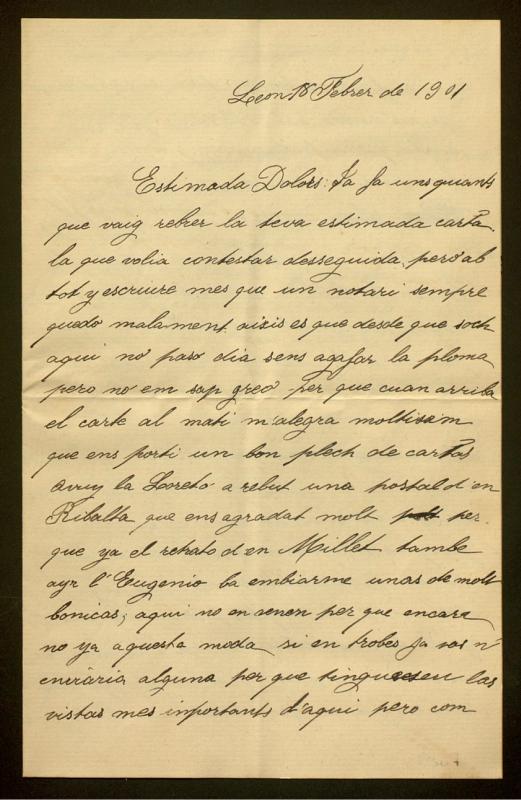 Leon 18 Febrer de 1901
Estimada Dolors: Ja fa uns quants
que vaig rebrer la teva estimada carta
la que volia contestar desseguida, pero ab
tot y escriure mes que un notari sempre
quedo malament aixis es que desde que soch
aqui no paso dia sens agafar la ploma
pero no em sap greo per que cuan arriba
el carte al mati m'alegra moltissim
que ens porti un bon plech de cartas
avuy la Loreto a rebut una postal d'en
Ribalta que ens agradat molt per
que ya el retrato d'en Millet tambe
ayr l'Eugenio ba embiarme unas de molt
bonicas; aqui no en venen per que encara
no ya aquesta moda si en trobes ja vos n'
enviaria alguna per que tinguesseu las
vistas mes importants d'aqui pero com